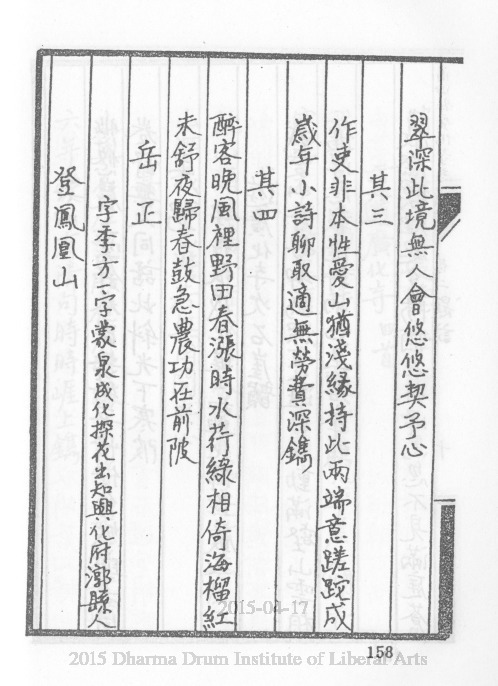 翠深此境無人會悠悠契予心
其三
作吏非本性愛山猶淺緣持此兩端意蹉跎成
歲年小詩聊取適無勞費深鐫
其四
醉客晚風裡野田春漲時水荇綠相倚海榴紅
未舒夜歸春鼓急農功在前陂
岳正
字季方一字蒙泉成化探花出知興化府漷縣人
登鳳凰山
158
2015-04-17
2015 Dharma Drum Institute of Liberal Arts